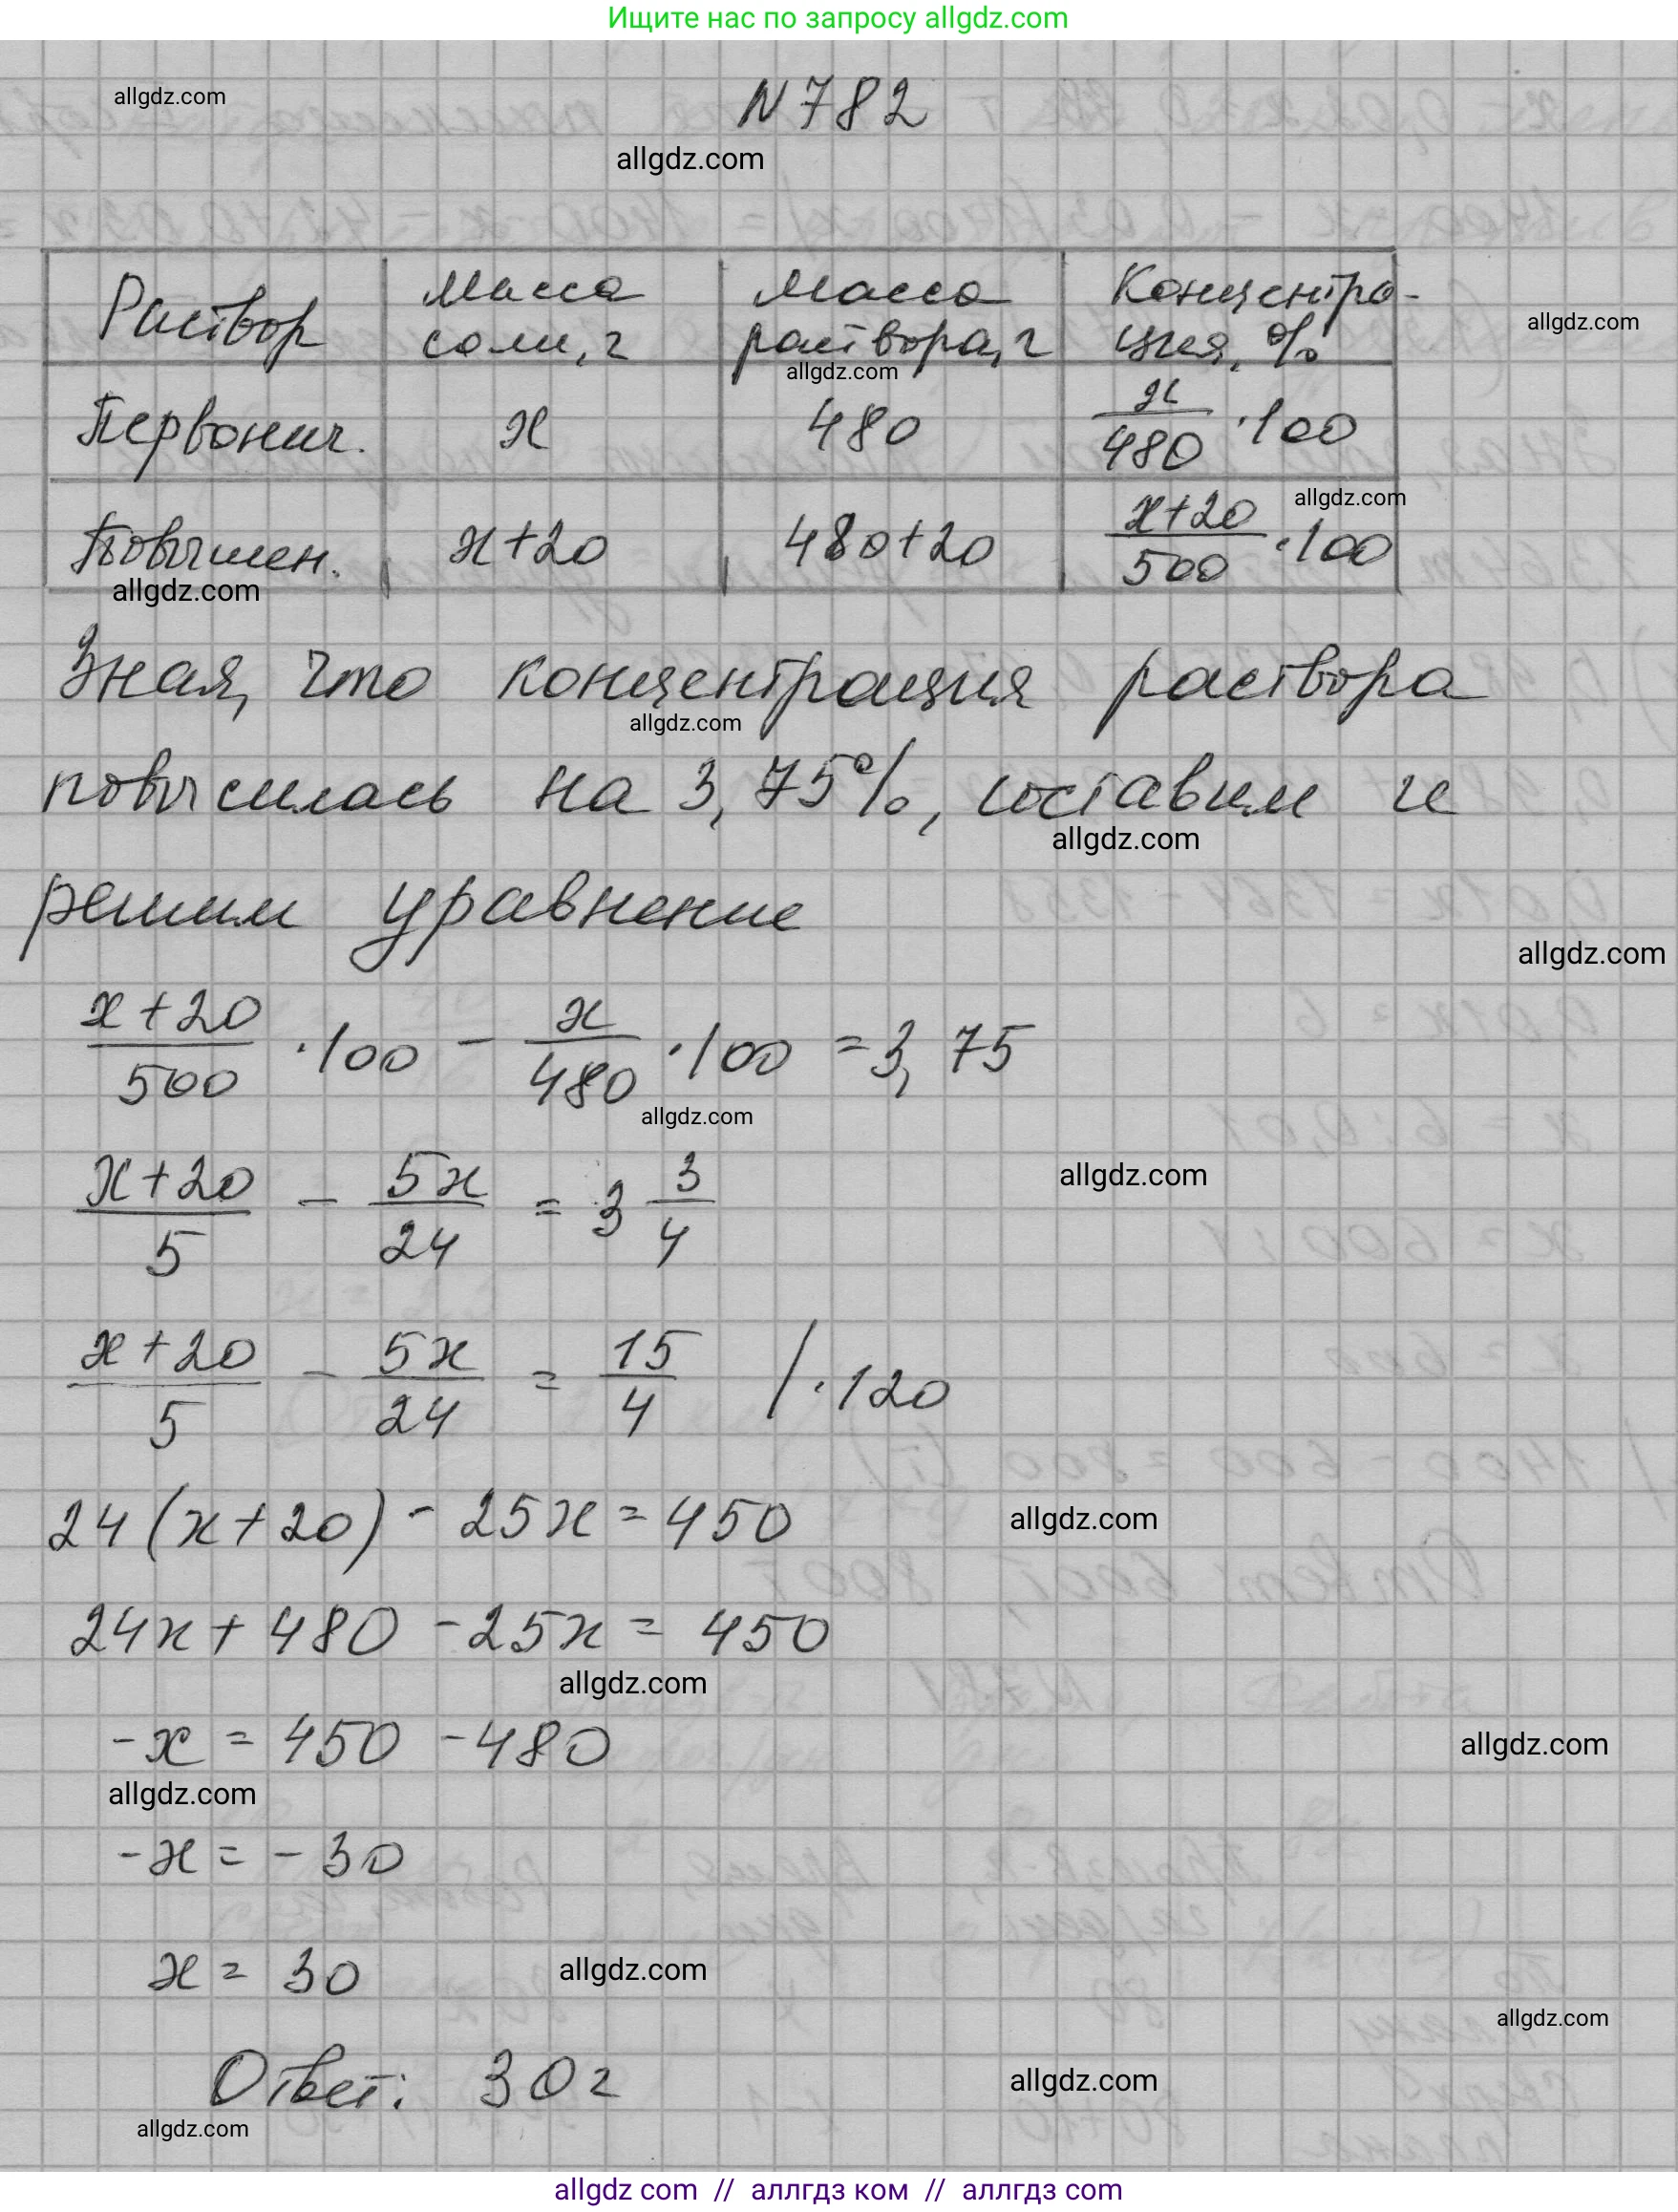 Ищите нас по запросу allgdz.com
allgdz.com
N782
allgdz.com
Раствор | Масса соли, г | Масса раствора, г | Концентра-ция, %
allgdz.com
allgdz.com
Первонач. | x | 480 | x/480 · 100
allgdz.com
Повышен. | x+20 | 480+20 | x+20/500 · 100
allgdz.com
Зная, что концентрация раствора
allgdz.com
повысилась на 3,75%, составим и
allgdz.com
решим уравнение
allgdz.com
x+20/500 · 100 - x/480 · 100 = 3,75
allgdz.com
x+20/5 - 5x/24 = 3 3/4
allgdz.com
x+20/5 - 5x/24 = 15/4 / · 120
24(x+20) - 25x = 450
allgdz.com
24x + 480 - 25x = 450
allgdz.com
-x = 450 - 480
allgdz.com
allgdz.com
-x = -30
x = 30
allgdz.com
allgdz.com
Ответ: 30г
allgdz.com
allgdz.com
allgdz com // аллгдз ком // аллгдз com